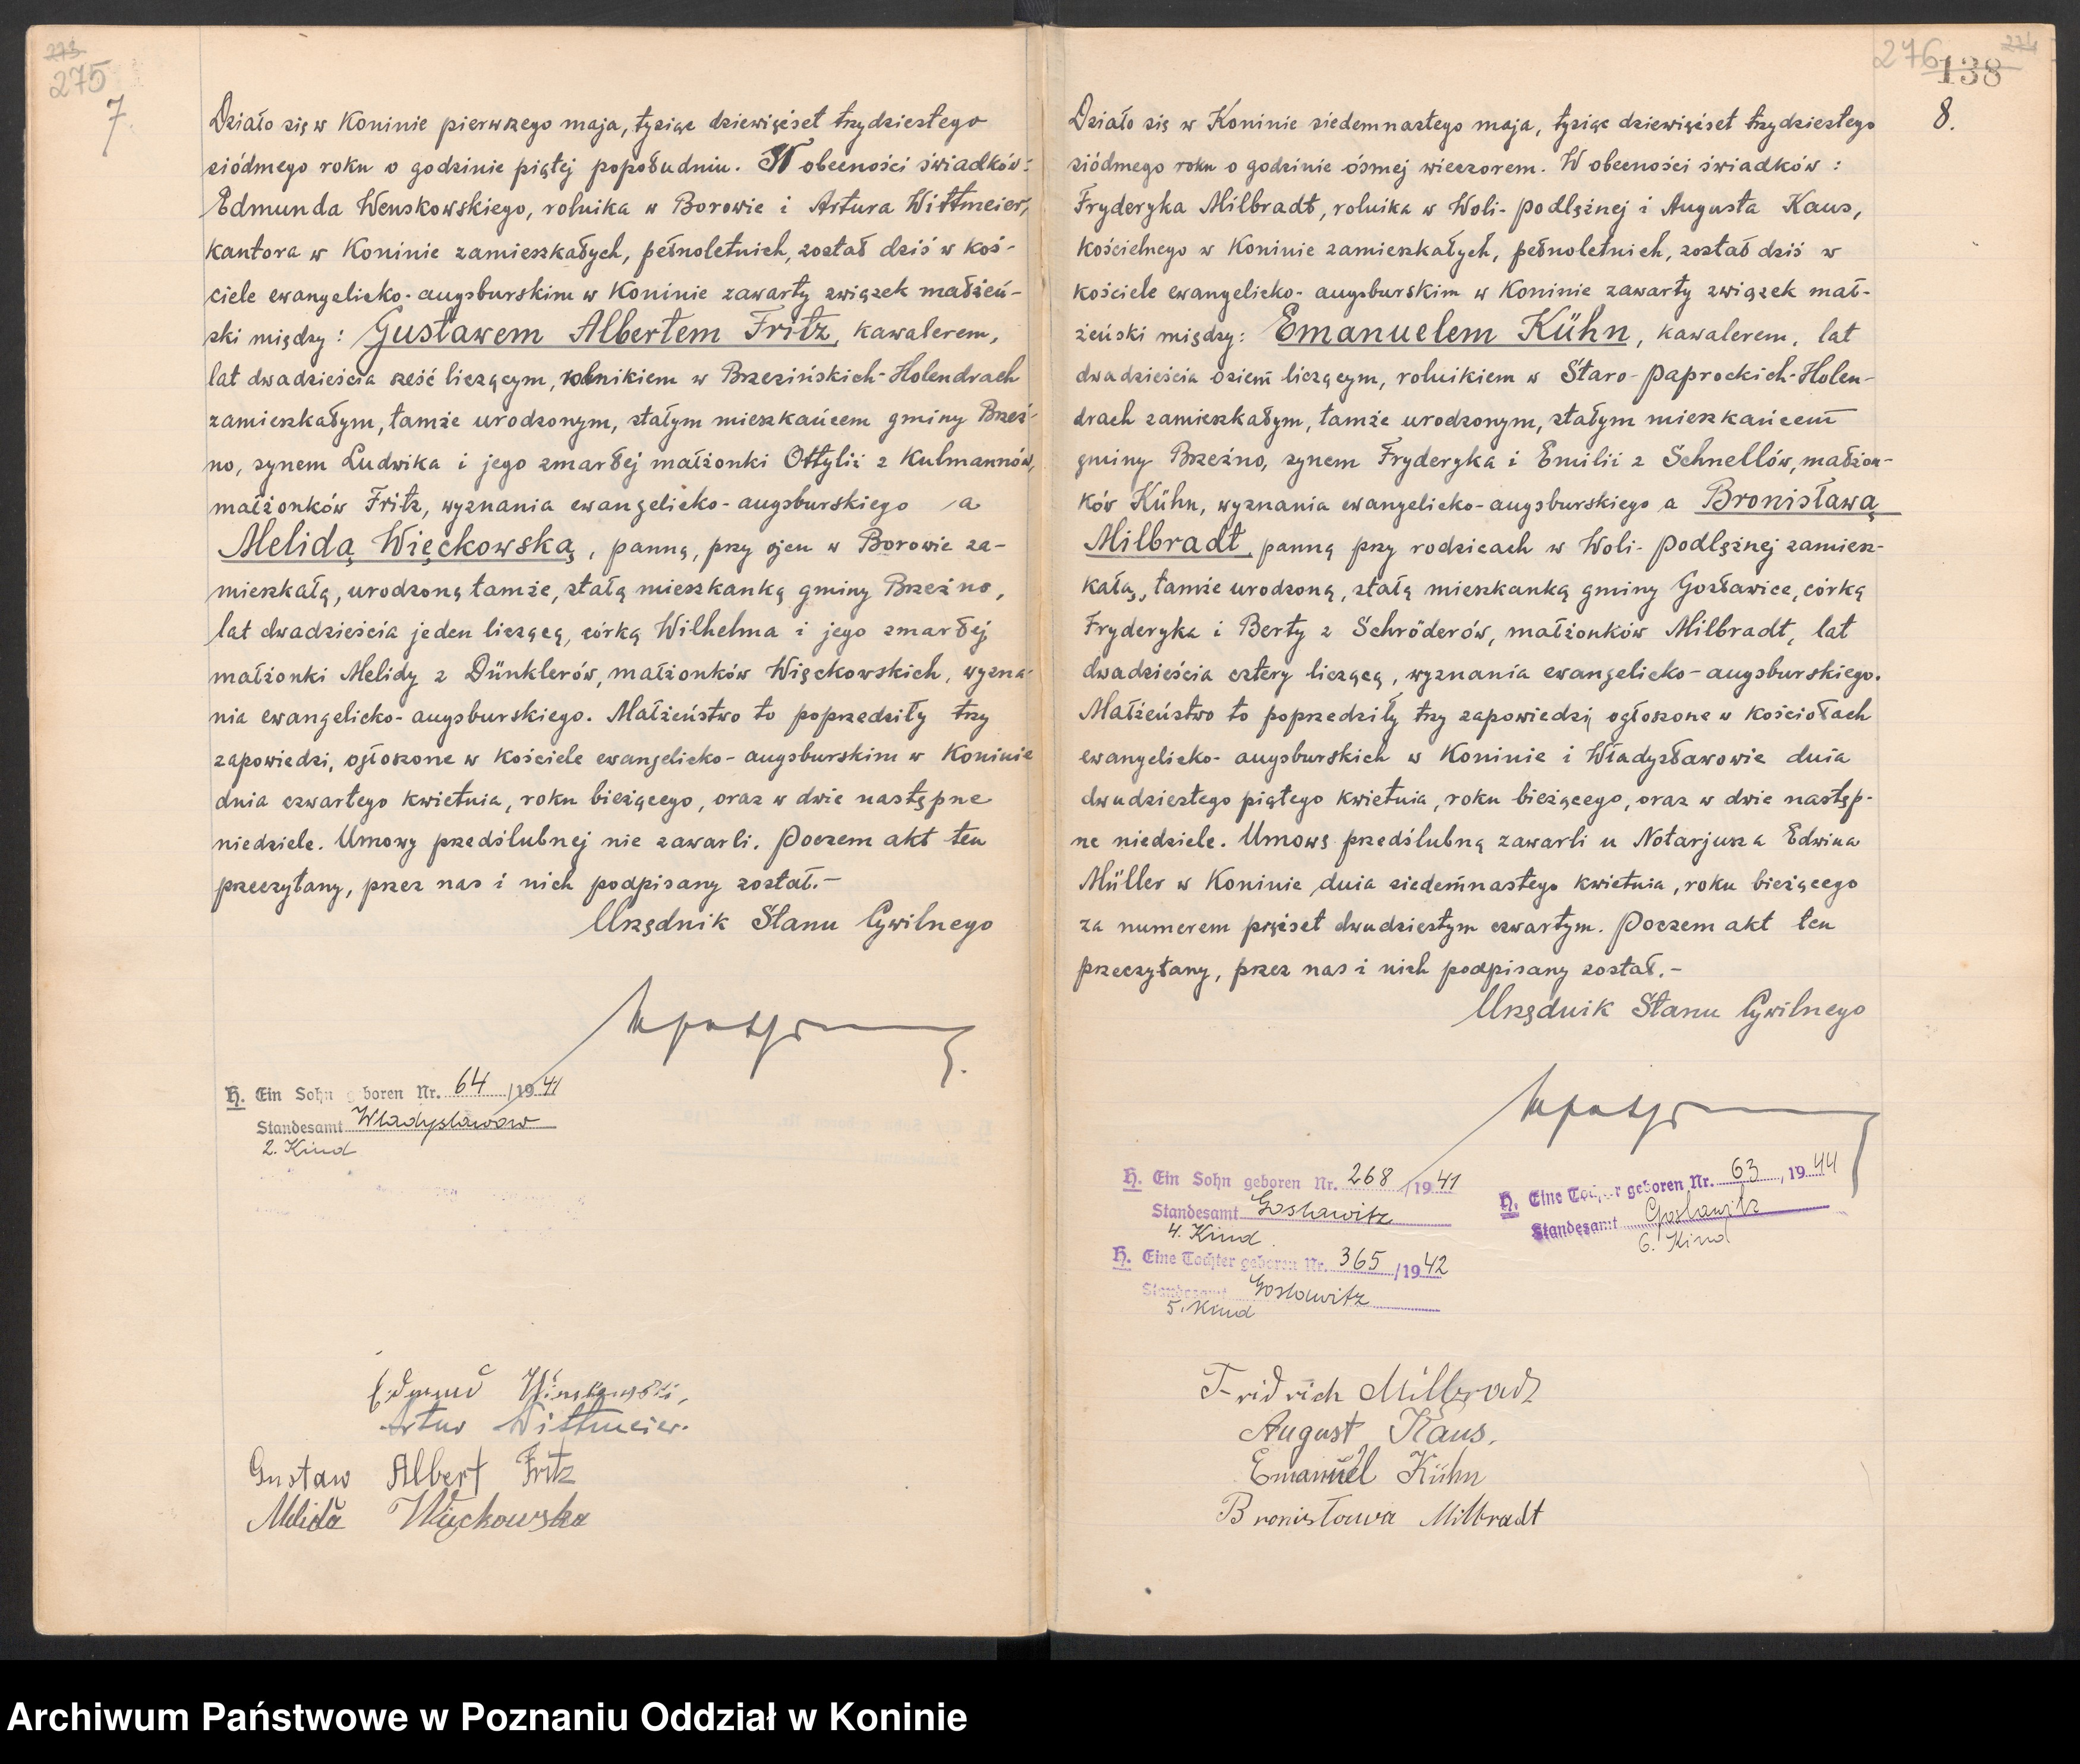 273
275
7
Działo się w Koninie pierwszego maja, tysiąc dziewięćset trzydziestego
siódmego roku o godzinie piątej popołudniu. W obecności świadków:
Edmunda Wenskowskiego, rolnika w Borowie i Artura Wittmeier,
kantora w Koninie zamieszkałych, pełnoletnich, został dziś w koś-
ciele ewangelicko-augsburskim w Koninie zawarty związek małżeń-
ski między: Gustawem Albertem Fritz, kawalerem,
lat dwadzieścia sześć liczącym, rolnikiem w Brzezińskich-Holendrach
zamieszkałym, tamże urodzonym, stałym mieszkańcem gminy Brzeź-
no, synem Ludwika i jego zmarłej małżonki Ottylii z Kulmannów,
małżonków Fritz, wyznania ewangelicko-augsburskiego a
Melidą Więckowską, panną, przy ojcu w Borowie za-
mieszkałą, urodzoną tamże, stałą mieszkanką gminy Brzeźno,
lat dwadzieścia jeden liczącą, córką Wilhelma i jego zmarłej
małżonki Melidy z Dünklerów, małżonków Więckowskich, wyzna-
nia ewangelicko-augsburskiego. Małżeństwo to poprzedziły trzy
zapowiedzi, ogłoszone w kościele ewangelicko-augsburskim w Koninie
dnia czwartego kwietnia, roku bieżącego, oraz w dwie następne
niedziele. Umowy przedślubnej nie zawarli. Poczem akt ten
przeczytany, przez nas i nich podpisany został.-
Urzędnik Stanu Cywilnego
H. Ein Sohn geboren Nr. 64 /1941
Standesamt Wladyslawow
2. Kind
Edmund
Artur Wittmeier.
Gustaw Albert Fritz
Melida Więckowska
276
138
8.
Działo się w Koninie siedemnastego maja, tysiąc dziewięćset trzydziestego
siódmego roku o godzinie ósmej wieczorem. W obecności świadków:
Fryderyka Milbradt, rolnika w Woli-Podlężnej i Augusta Kaus,
kościelnego w Koninie zamieszkałych, pełnoletnich, został dziś w
kościele ewangelicko-augsburskim w Koninie zawarty związek mał-
żeński między: Emanuelem Kühn, kawalerem, lat
dwadzieścia osiem liczącym, rolnikiem w Staro-Paprockich-Holen-
drach zamieszkałym, tamże urodzonym, stałym mieszkańcem
gminy Brzeźno, synem Fryderyka i Emilii z Schnellów, małżon-
ków Kühn, wyznania ewangelicko-augsburskiego a Bronisławą
Milbradt, panną przy rodzicach w Woli-Podlężnej zamiesz-
kałą, tamże urodzoną, stałą mieszkanką gminy Gosławice, córką
Fryderyka i Berty z Schröderów, małżonków Milbradt, lat
dwadzieścia cztery liczącą, wyznania ewangelicko-augsburskiego.
Małżeństwo to poprzedziły trzy zapowiedzi, ogłoszone w kościołach
ewangelicko-augsburskich w Koninie i Władysławowie dnia
dwudziestego piątego kwietnia, roku bieżącego, oraz w dwie następ-
ne niedziele. Umowę przedślubną zawarli u Notarjusza Edwina
Müller w Koninie dnia siedemnastego kwietnia, roku bieżącego
za numerem pięćset dwudziestym czwartym. Poczem akt ten
przeczytany, przez nas i nich podpisany został.-
Urzędnik Stanu Cywilnego
H. Ein Sohn geboren Nr. 268 /1941
Standesamt Goslawitz
4. Kind
H. Eine Tochter geboren Nr. 365 /1942
Standesamt Goslawitz
5. Kind
H. Eine Tochter geboren Nr. 63, 1944
Standesamt Goslawitz
6. Kind
Fridrich Milbradt
August Kaus.
Emanuel Kühn
Bronisława Milbradt
Archiwum Państwowe w Poznaniu Oddział w Koninie